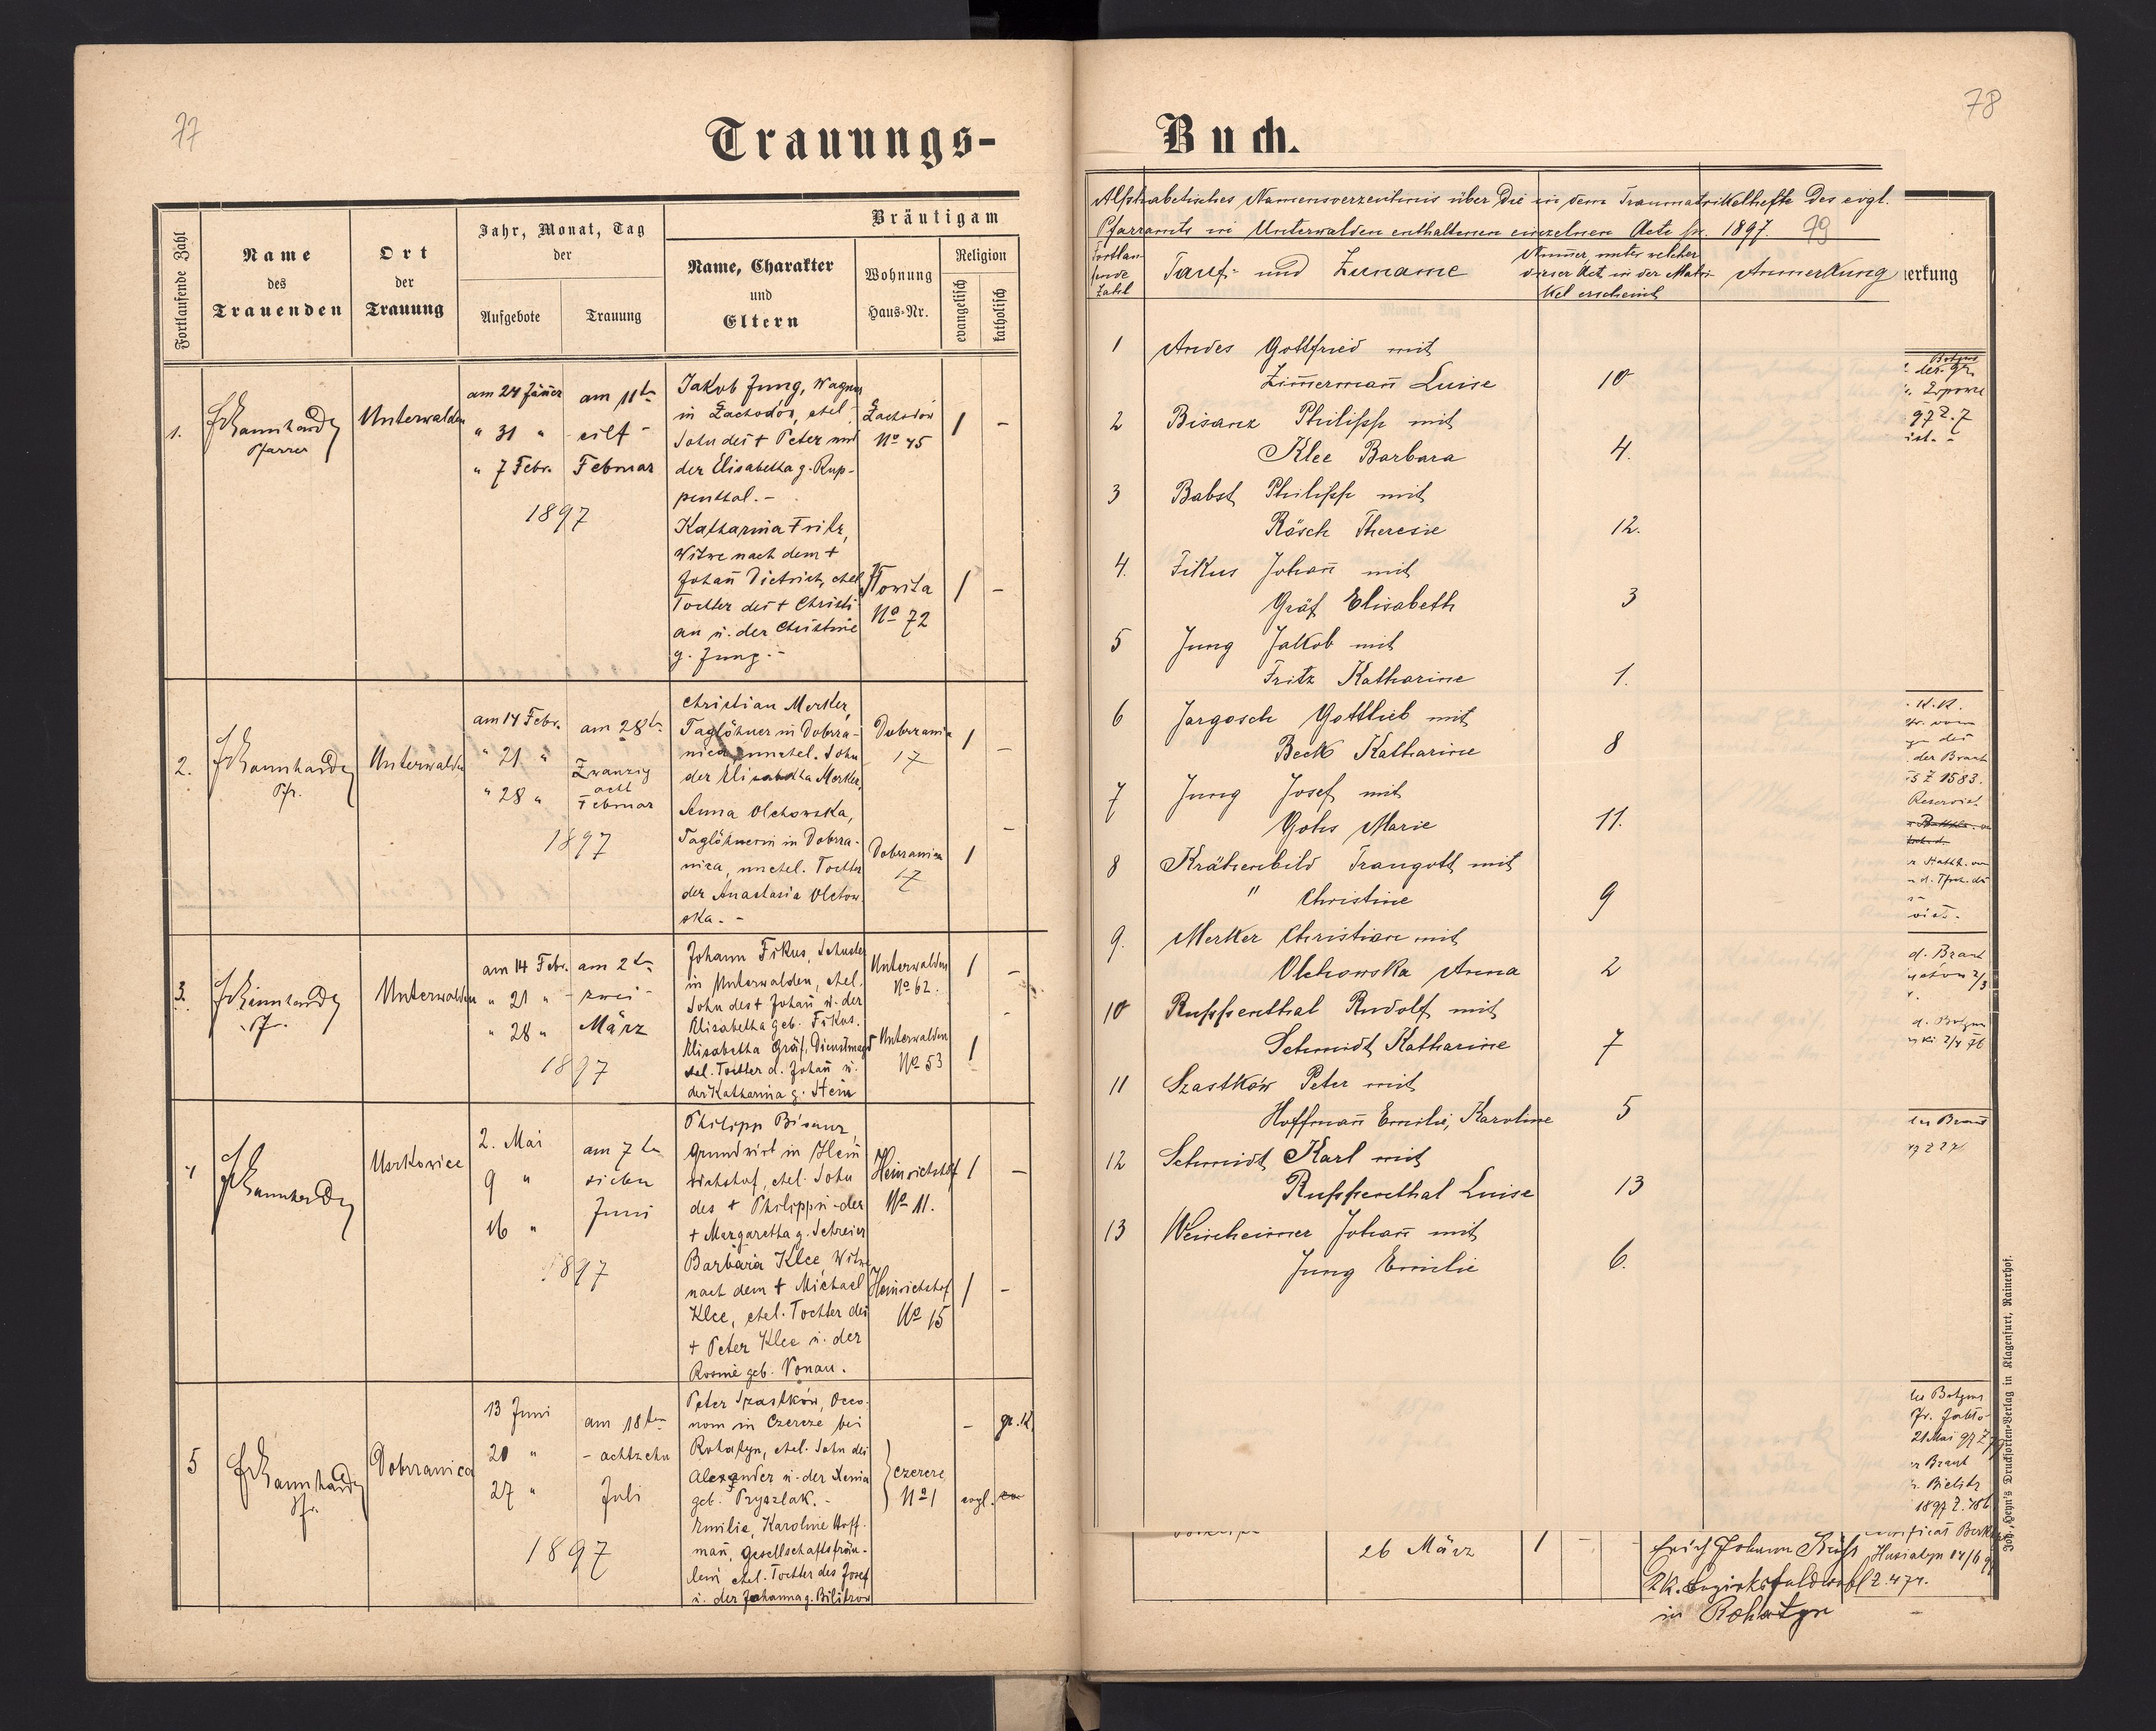 77
Trauungs-
Fortlaufende Zahl
Name
des
Trauenden
Ort
der
Trauung
Jahr, Monat, Tag
der
Aufgebote
Trauung
Bräutigam
Name, Charakter
und
Eltern
Wohnung
Haus-Nr.
Religion
evangelisch
katholisch
1.
Pfarrer
Unterwalden
am 24 Jäner
" 31 "
" 7 Febr.
am 11ten
- eilf -
Februar
1897
Jakob Jung, Wagner
in Zachodów, ehel.
Sohn des + Peter und
der Elisabetha g. Rup-
penthal. -
Katharina Fritz,
Witwe nach dem +
Johañ Dietrich, ehel.
Tochter des + Christi
an u. der Christine
g. Jung. -
Zachodów
No 45
1
-
No 72
1
-
2.
Pfr.
Unterwalden
am 14 Febr.
" 21 "
" 28 "
am 28ten
Zwanzig
acht
Februar
1897
Christian Merker,
Taglöhner in Dobrza-
nica, unehel. Sohn
der Elisabetha Merker,
Anna Olchowska,
Taglöhnerin in Dobrza-
nica, unehel. Tochter
der Anastasia Olchow
ska. -
Dobrzanica
17
1
-
Dobrzanica
17
1
-
3.
Pf.
Unterwalden
am 14 Febr.
" 21 "
" 28 "
am 2ten
- zwei -
März
1897
Johann Fikus, Schuster
in Unterwalden, ehel.
Sohn des + Johañ u. der
Elisabetha geb. Fikus.
Elisabetha Gräf, Dienstmagd
ehel. Tochter d. Johañ u.
der Katharina g. Stein
Unterwalden
No 62.
1
-
Unterwalden
No 53
1
-
4
Uszkowice
2. Mai
9 "
16 "
am 7ten
sieben
Juni
1897
Philipp Bisanz,
Grundwirt in Hein
richshof, ehel. Sohn
des + Philipp u. der
+ Margaretha g. Schreier
Barbara Klee, Witwe
nach dem + Michael
Klee, ehel. Tochter des
+ Peter Klee u. der
Rosine geb. Vonau.
Heinrichshof
No 11.
1
-
Heinrichshof
No 15
1
-
5
Pfr.
Dobrzanica
13 Juni
20 "
27 "
am 18ten
- achtzehn
Juli
1897
Peter Szastków, Oeco-
nom in Czercze bei
Rohatyn, ehel. Sohn des
Alexander u. der Xenia
geb. Pryszlak. -
Emilie, Karoline Hoff-
mañ, Gesellschaftsfräu-
lein ehel. Tochter des Josef
u. der Johanna g.
Czercze
No 1
-
gr. K.
evgl.
78
Buch.
Alphabetisches Namensverzeichnis über die in dem Traumatrikelhefte des evgl.
Pfarramts in Unterwalden enthaltenen einzelnen Acte pr. 1897. 79
Fortlau-
fende
Zahl
Tauf- und Zuname
Nummer, unter welcher
dieser Act in der Matri-
kel erscheint
Anmerkung
erkung
1 Andes Gottfried mit
Zimmermañ Luise 10
2 Bisanz Philipp mit
Klee Barbara 4.
3 Babst Philipp mit
Rösch Theresie 12.
4. Fikus Johañ mit
Gräf Elisabeth 3
5 Jung Jakob mit
Fritz Katharine 1.
6 Jargosch Gottlieb mit
Beck Katharine 8
7 Jung Josef mit
Gohs Marie 11.
8 Krähenbild Traugott mit
" Christine 9
9. Merker Christian mit
Olchowska Anna 2
10 Ruppenthal Rudolf mit
Schmidt Katharine 7
11 Szastków Peter mit
Hoffmañ Emilie, Karoline 5
12 Schmidt Karl mit
Ruppenthal Luise 13
13 Weinheimer Johañ mit
Jung Emilie 6.
der Braut
Z 1583.
Reservist
d. Braut
21 Mai 97
Braut
Bielitz
1897 Z.
26 März
1
-
Erich Johann
in Rohatyn
Joh. Heyn's Drucksorten-Verlag in Klagenfurt, Rainerhof.